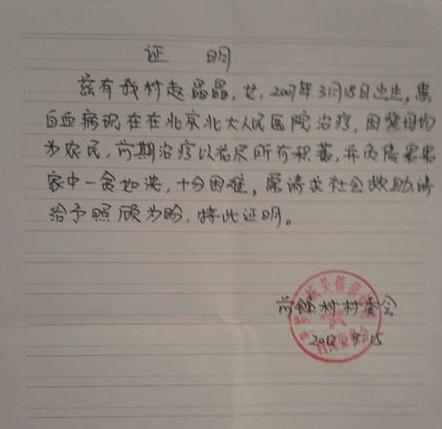 证 明
兹有我村赵晶晶，女，2007年3月18日出生，患
白血病现在在北京北大人民医院治疗，因父母均
为农民，前期治疗以花尽所有积蓄，并负债累累
家中一贫如洗，十分困难，需请求社会救助请
给予照顾为盼，特此证明。
村村委会
2012